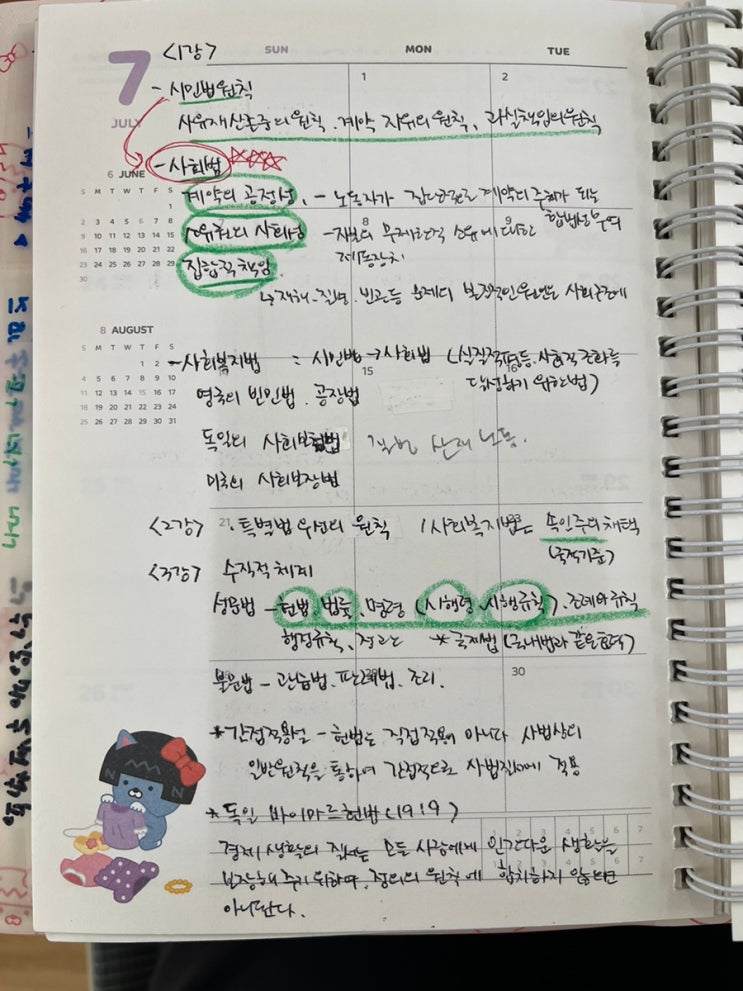 <1강>
7
JULY
SUN MON TUE
1 2
- 시민법원칙
사유재산존중의원칙, 계약 자유의 원칙, 과실책임의원칙
- 사회법
6 JUNE
S M T W T F S
1
2 3 4 5 6 7 8
9 10 11 12 13 14 15
16 17 18 19 20 21 22
23 24 25 26 27 28 29
30
계약의 공정성 - 노동자가 집단으로 계약의 주체가 되는
합법성 부여
8 9
소유권의 사회성 - 자본의 무제한적 소유에 대한
제동장치
집합적책임
↳ 재해, 질병, 빈곤등 문제의 본질적인원인은 사회구조에
8 AUGUST
S M T W T F S
1 2 3
4 5 6 7 8 9 10
11 12 13 14 15 16 17
18 19 20 21 22 23 24
25 26 27 28 29 30 31
- 사회복지법 : 시민법 → 사회법 (실질적평등, 사회적조화를
15 16
달성하기 위한법)
영국의 빈민법, 공장법
독일의 사회보험법 질병 산재 노동.
미국의 사회보장법
<2강> 21 · 특별법 우선의 원칙 / 사회복지법은 속인주의 채택
(국적기준)
<3강> 수직적 체계
성문법 - 헌법, 법률, 명령 (시행령, 시행규칙), 조례와 규칙
행정규칙, 정관 * 국제법 (국내법과 같은효력)
불문법 - 관습법, 판례법, 조리.
30
* 간접적용설 - 헌법는 직접적용이 아니다 사법상의
일반원칙을 통하여 간접적으로 사법질서에 적용
* 독일 바이마르헌법 (1919)
경제생활의 질서는 모든 사람에게 인간다운 생활을
보장해 주기 위하여, 정의의 원칙에 합치하지 않으면
아니된다.